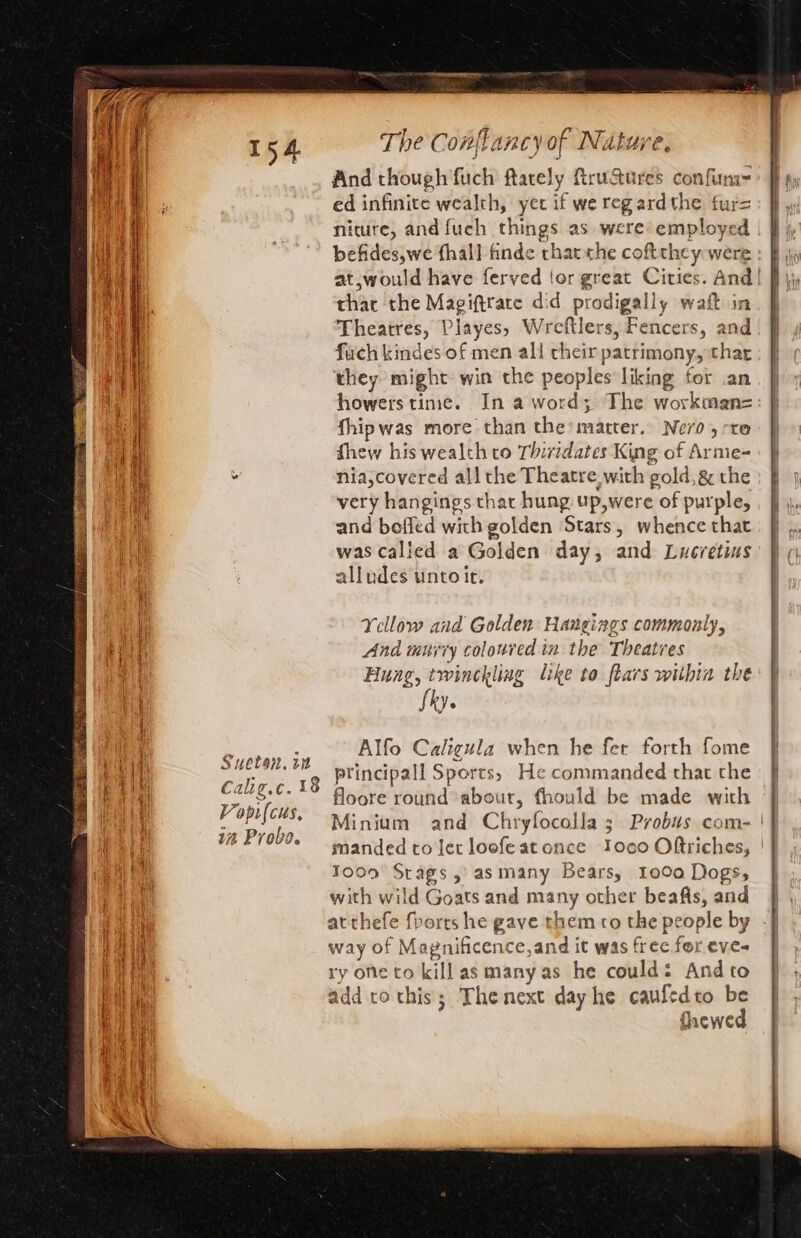 154 The Conſtancy of Nature.
And though ſuch ſtately ſtructures conſum-
ed infinite wealth, yet if we regard the fur-
niture, and ſuch things as were employed
beſides, we ſhall finde that the coſt they were
at, would have ſerved for great Cities. And
that the Magiſtrate did prodigally waſt in
Theatres, Playes, Wreſtlers, Fencers, and
ſuch kindes of men all their patrimony, that
they might win the peoples liking for an
howers time. In a word; The workman-
ſhip was more than the matter. Nero, to
ſhew his wealth to Thiridates King of Arme-
nia, covered all the Theatre, with gold, & the
very hangings that hung up, were of purple,
and boſſed with golden Stars, whence that
was called a Golden day, and Lucretius
alludes unto it.
Yellow and Golden Hangings commonly,
And murry coloured in the Theatres
Hung, twinckling like to ſtars within the
ſky.
Alſo Caligula when he ſet forth ſome
principall Sports, He commanded that the
floore round about, ſhould be made with
Minium and Chryſocolla; Probus com-
manded to let looſe at once 1000 Oſtriches,
1000 Stags, as many Bears, 1000 Dogs,
with wild Goats and many other beaſts, and
at theſe ſports he gave them to the people by
way of Magnificence, and it was free for eve-
ry one to kill as many as he could: And to
add to this; The next day he cauſed to be
ſhewed
Sueton. in
Calig. c. 18
Vopiſcus,
in Probo.